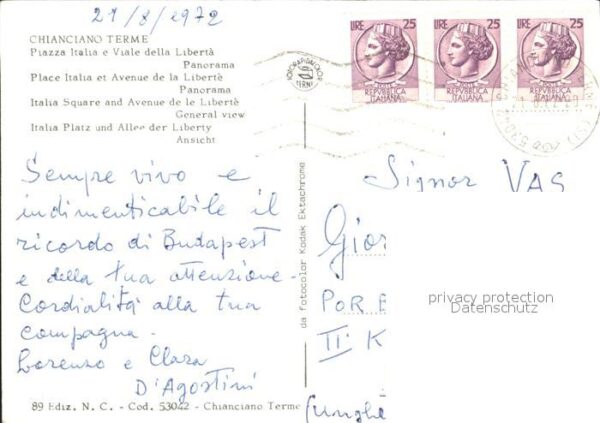 21/8/1972
CHIANCIANO TERME
Piazza Italia e Viale della Libertà
Panorama
Place Italia et Avenue de la Libertè
Panorama
Italia Square and Avenue de le Libertè
General view
Italia Platz und Allee der Liberty
Ansicht
Sempre vivo e
indimenticabile il
ricordo di Budapest
e della tua attenzione.
Cordialità alla tua
compagna.
Lorenzo e Clara
D'Agostini
89 Ediz. N. C. - Cod. 53042 - Chianciano Terme
da fotocolor Kodak Ektachrome
LIRE 25
LIRE 25
LIRE 25
REPVBBLICA
ITALIANA
REPVBBLICA
ITALIANA
REPVBBLICA
ITALIANA
Signor VAS
Gior
POR E
II K
(Unghe
privacy protection
Datenschutz